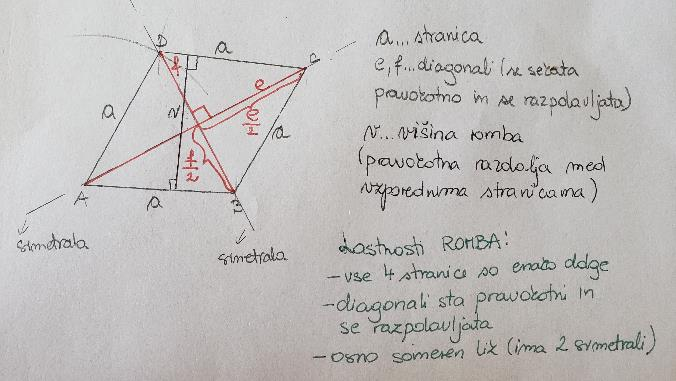 D
a
C
f
e
a
v
e/2
a
f/2
A
a
B
simetrala
simetrala
a... stranica
e, f... diagonali (se sekata
pravokotno in se razpolavljata)
v... višina romba
(pravokotna razdalja med
vzporednima stranicama)
Lastnosti ROMBA:
- vse 4 stranice so enako dolge
- diagonali sta pravokotni in
se razpolavljata
- osno someren lik (ima 2 simetrali)